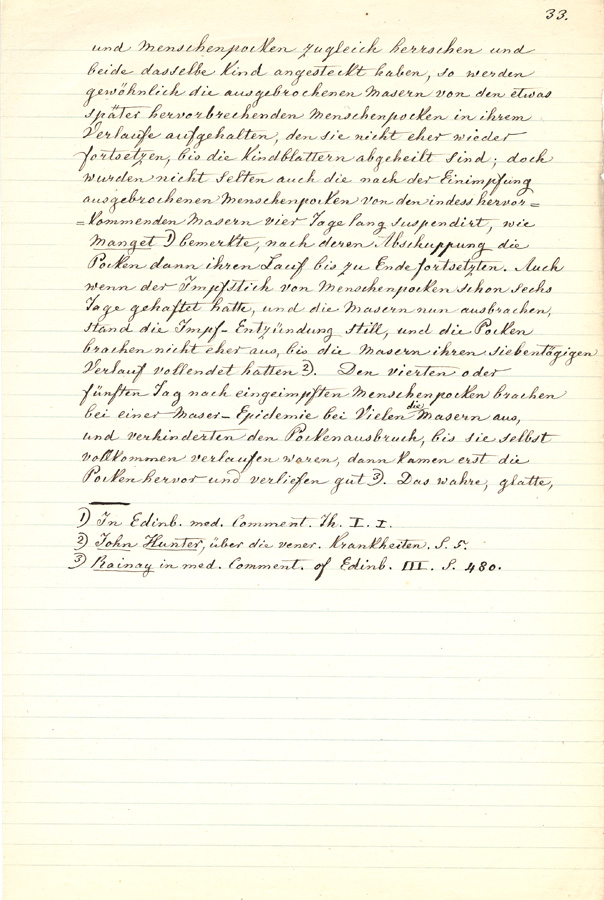 33.
und Menschenpocken zugleich herrschen und
beide dasselbe Kind angesteckt haben, so werden
gewöhnlich die ausgebrochenen Masern von den etwas
später hervorbrechenden Menschenpocken in ihrem
Verlaufe aufgehalten, den sie nicht eher wieder
fortsetzen, bis die Kindblattern abgeheilt sind; doch
wurden nicht selten auch die nach der Einimpfung
ausgebrochenen Menschenpocken von den indess hervor=
=kommenden Masern vier Tage lang suspendirt, wie
Manget 1) bemerkte, nach deren Abschuppung die
Pocken dann ihren Lauf bis zu Ende fortsetzten. Auch
wenn der Impfstich von Menschenpocken schon sechs
Tage gehaftet hatte, und die Masern nun ausbrachen,
stand die Impf-Entzündung still, und die Pocken
brachen nicht eher aus, bis die Masern ihren siebentägigen
Verlauf vollendet hatten 2). Den vierten oder
fünften Tag nach eingeimpften Menschenpocken brachen
bei einer Maser-Epidemie bei Vielen die Masern aus,
und verhinderten den Pockenausbruch, bis sie selbst
vollkommen verlaufen waren, dann kamen erst die
Pocken hervor und verliefen gut 3). Das wahre, glatte,
1) In Edinb. med. Comment. Th. I. I.
2) John Hunter, über die vener. Krankheiten. S. 5.
3) Rainay in med. Comment. of Edinb. III. S. 480.